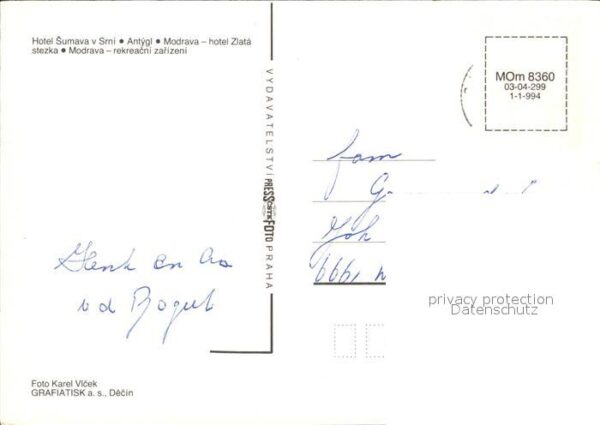 Hotel Šumava v Srní ● Antýgl ● Modrava – hotel Zlatá
stezka ● Modrava – rekreační zařízení
VYDAVATELSTVÍ PRESSFOTO PRAHA
ČSTK
MOm 8360
03-04-299
1-1-994
fam
G
Joh
6999
Henk en
v d
privacy protection
Datenschutz
Foto Karel Vlček
GRAFIATISK a. s., Děčín